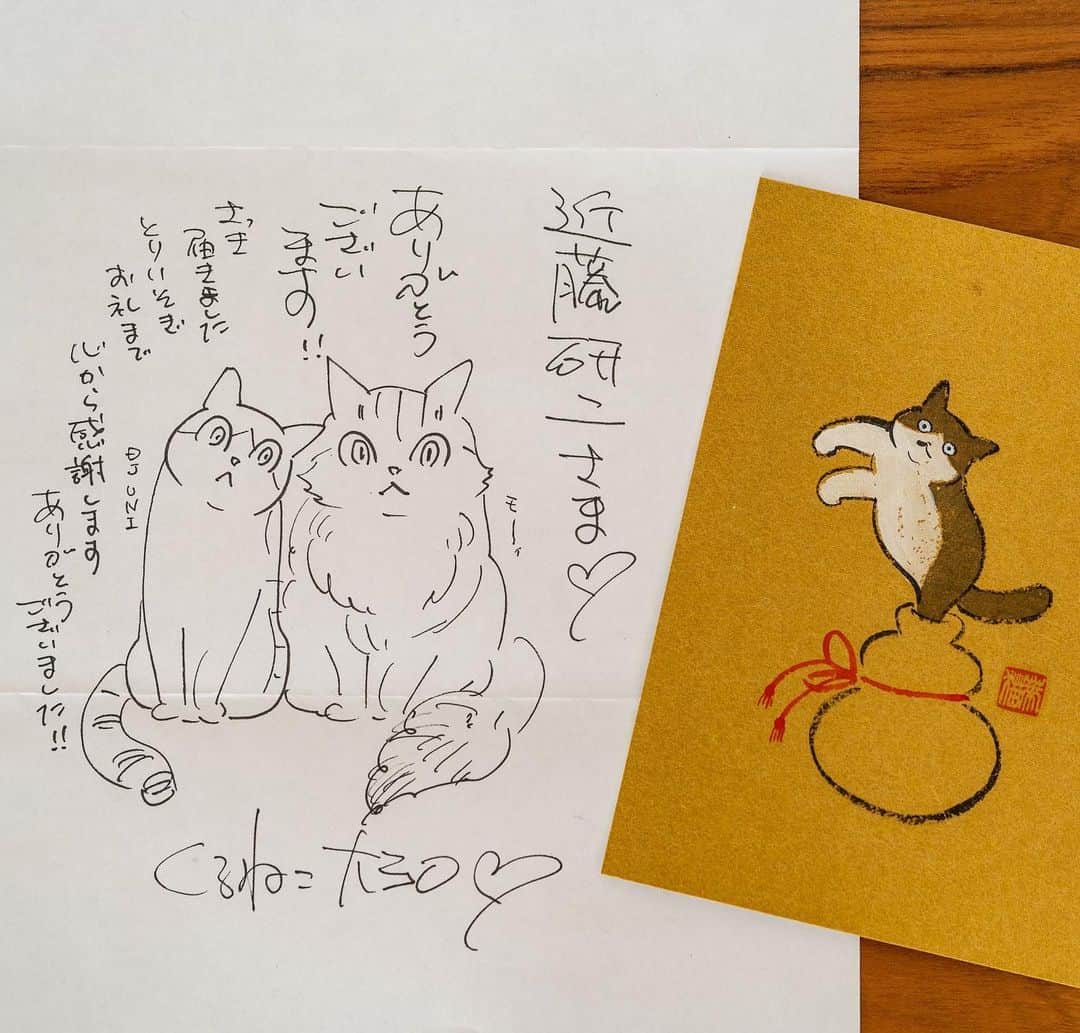 近藤研二さま♡
ありがとう
ござい
ます!!
さっき
届きました
とりいそぎ
お礼まで
心から感謝します
ありがとう
ございました!!
モーィ
UNI
くるねこ大和♡